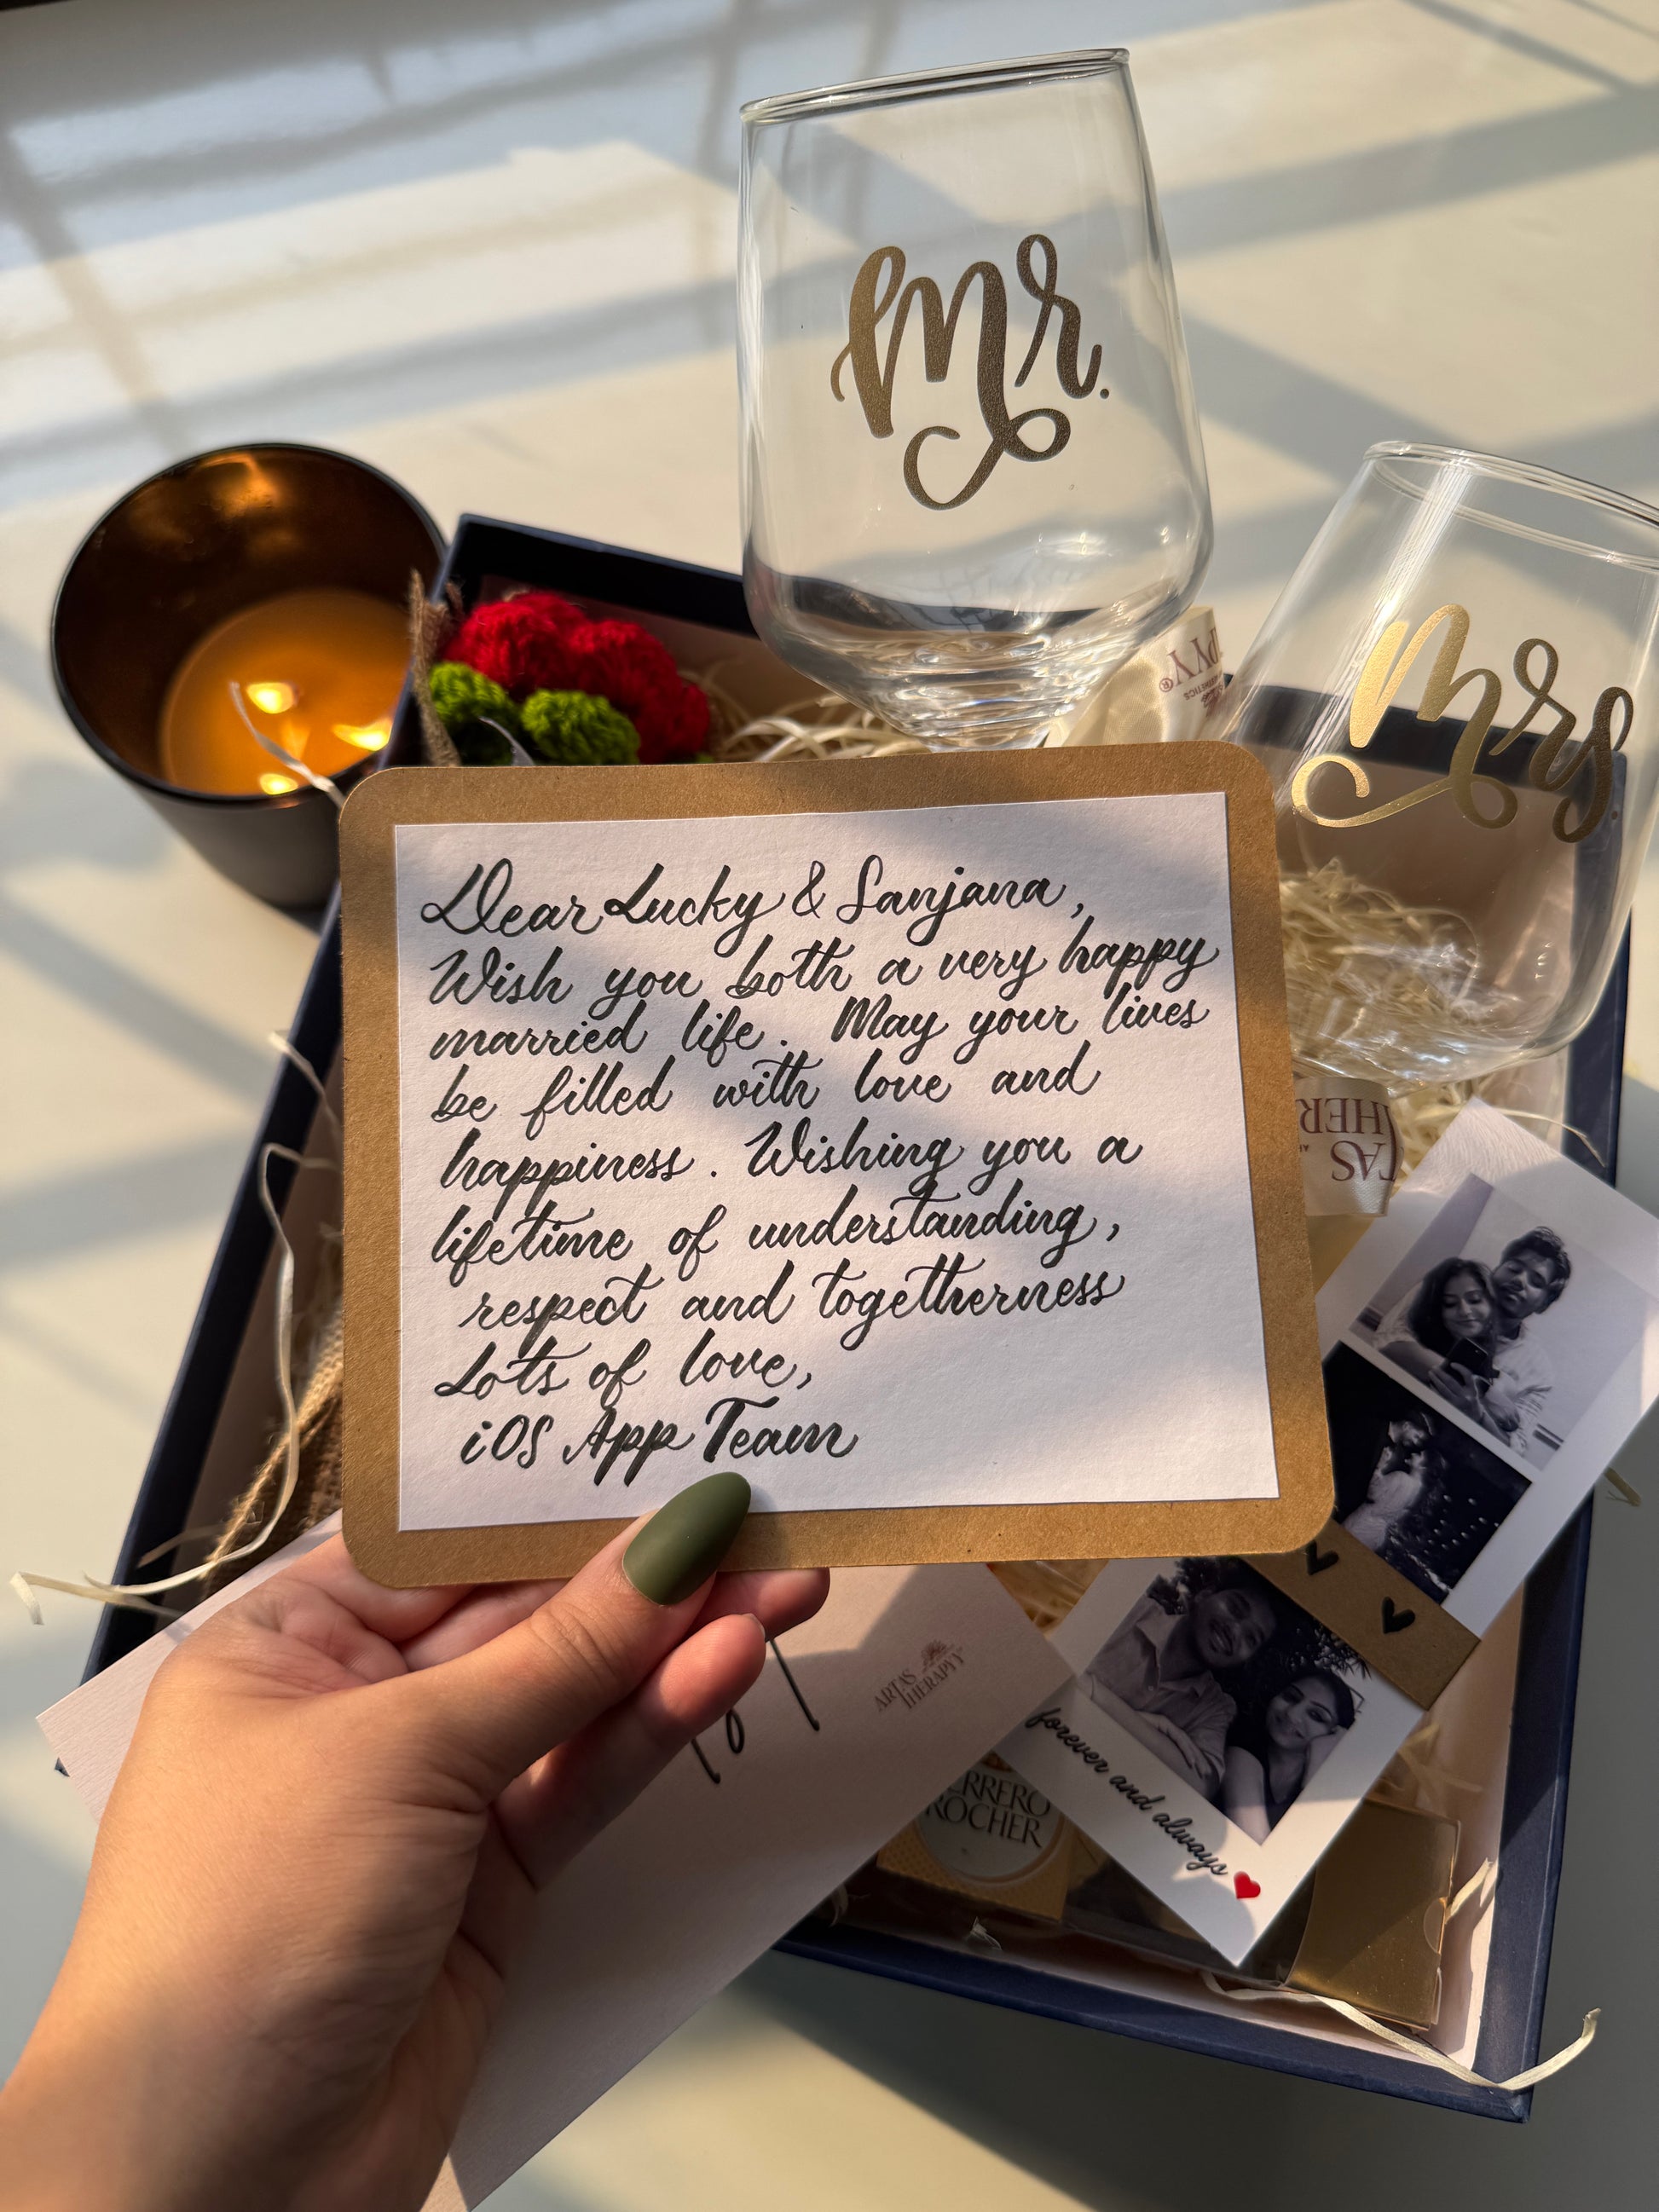 Mr.
Mrs
PY®
Dear Lucky & Sanjana,
Wish you both a very happy
married life. May your lives
be filled with love and
happiness. Wishing you a
lifetime of understanding,
respect and togetherness
Lots of love,
iOS App Team
TAS
HER
ARTAS
THERAPYY
RRERO
ROCHER
forever and always ❤